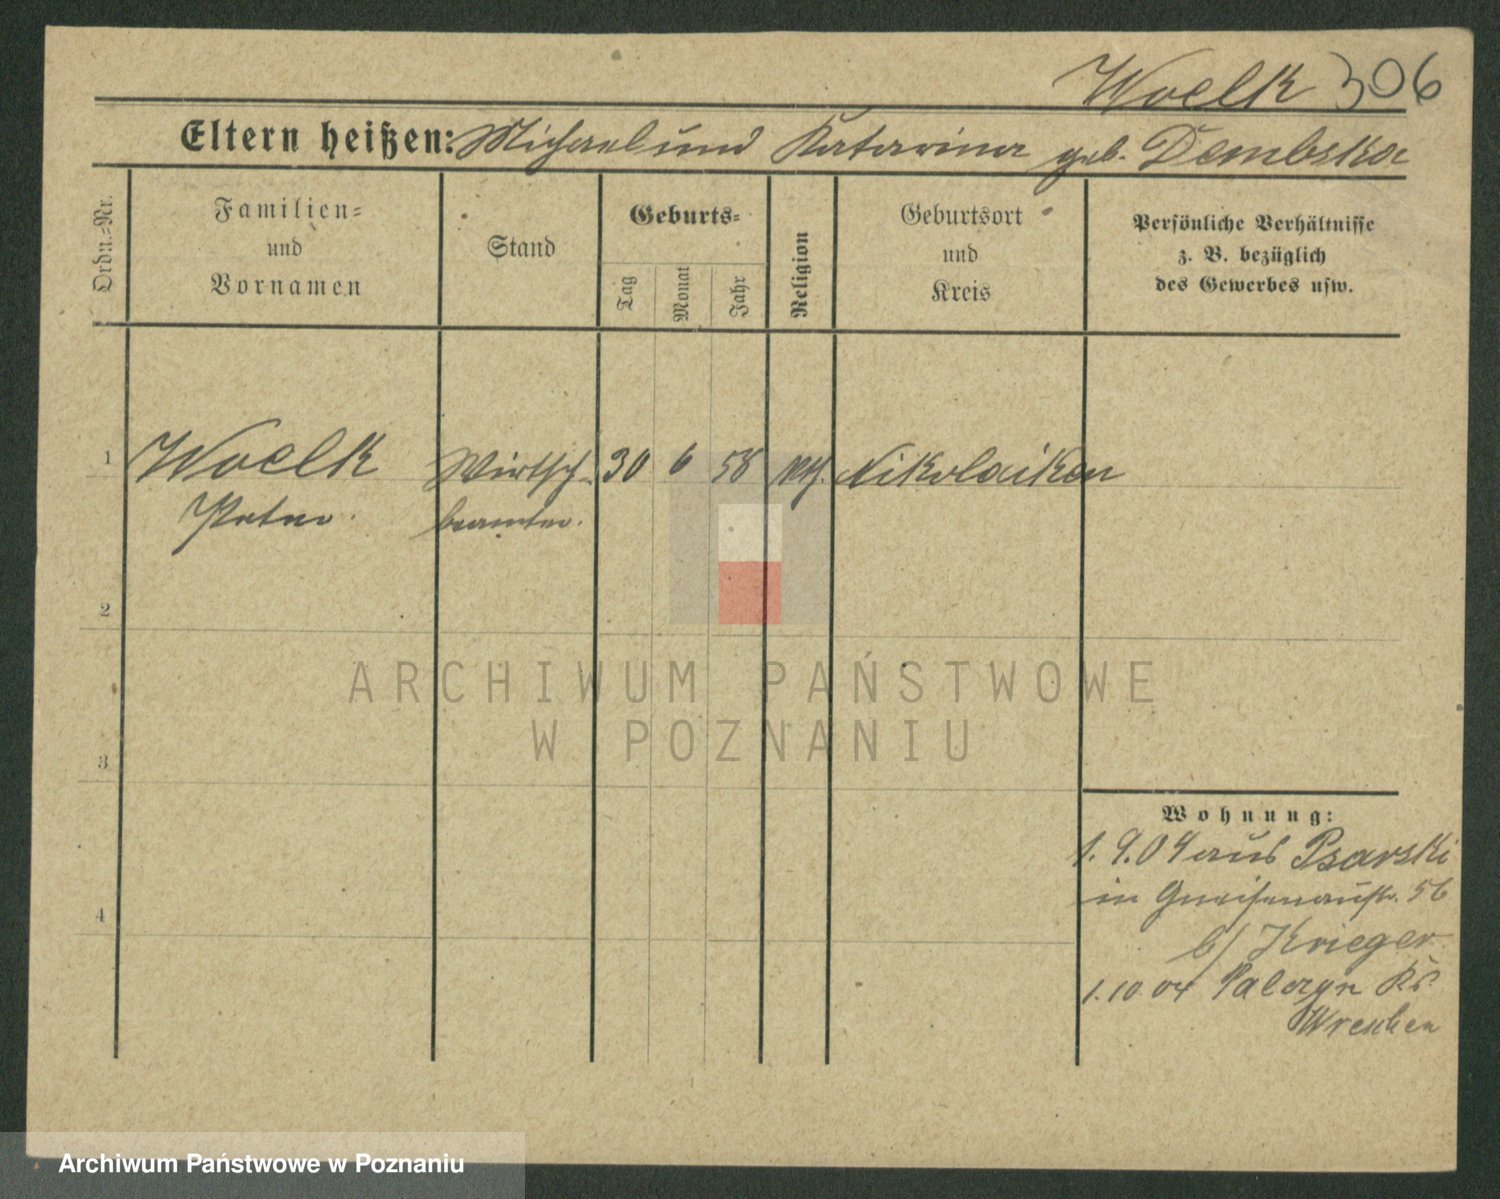 Woelk 306
Eltern heißen: Michael und Katarina geb. Dembska
Ordn.-Nr.
Familien-
und
Vornamen
Stand
Geburts-
Tag
Monat
Jahr
Religion
Geburtsort
und
Kreis
Persönliche Verhältnisse
z. B. bezüglich
des Gewerbes usw.
1 Woelk Wirtsch- 30 6 58 kth. Nikolaiken
Peter beamter.
2
3
4
Wohnung:
1. 9. 04 aus Psarski
in Gneisenaustr. 5b
b/ Krieger
1. 10. 04 Kr.
Wreschen
ARCHIWUM PAŃSTWOWE
W POZNANIU
Archiwum Państwowe w Poznaniu